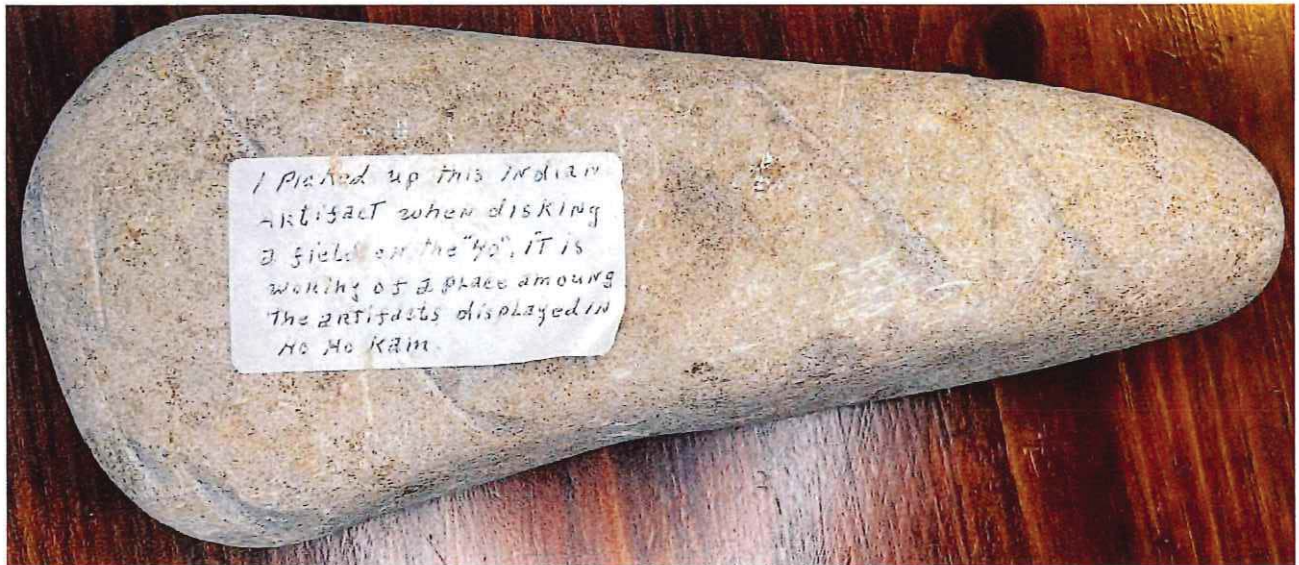 I Picked up this indian
artifact when disking
a field on the "40". iT is
woking of a place amoung
The artifacts displayed in
Ho Ho Kam.